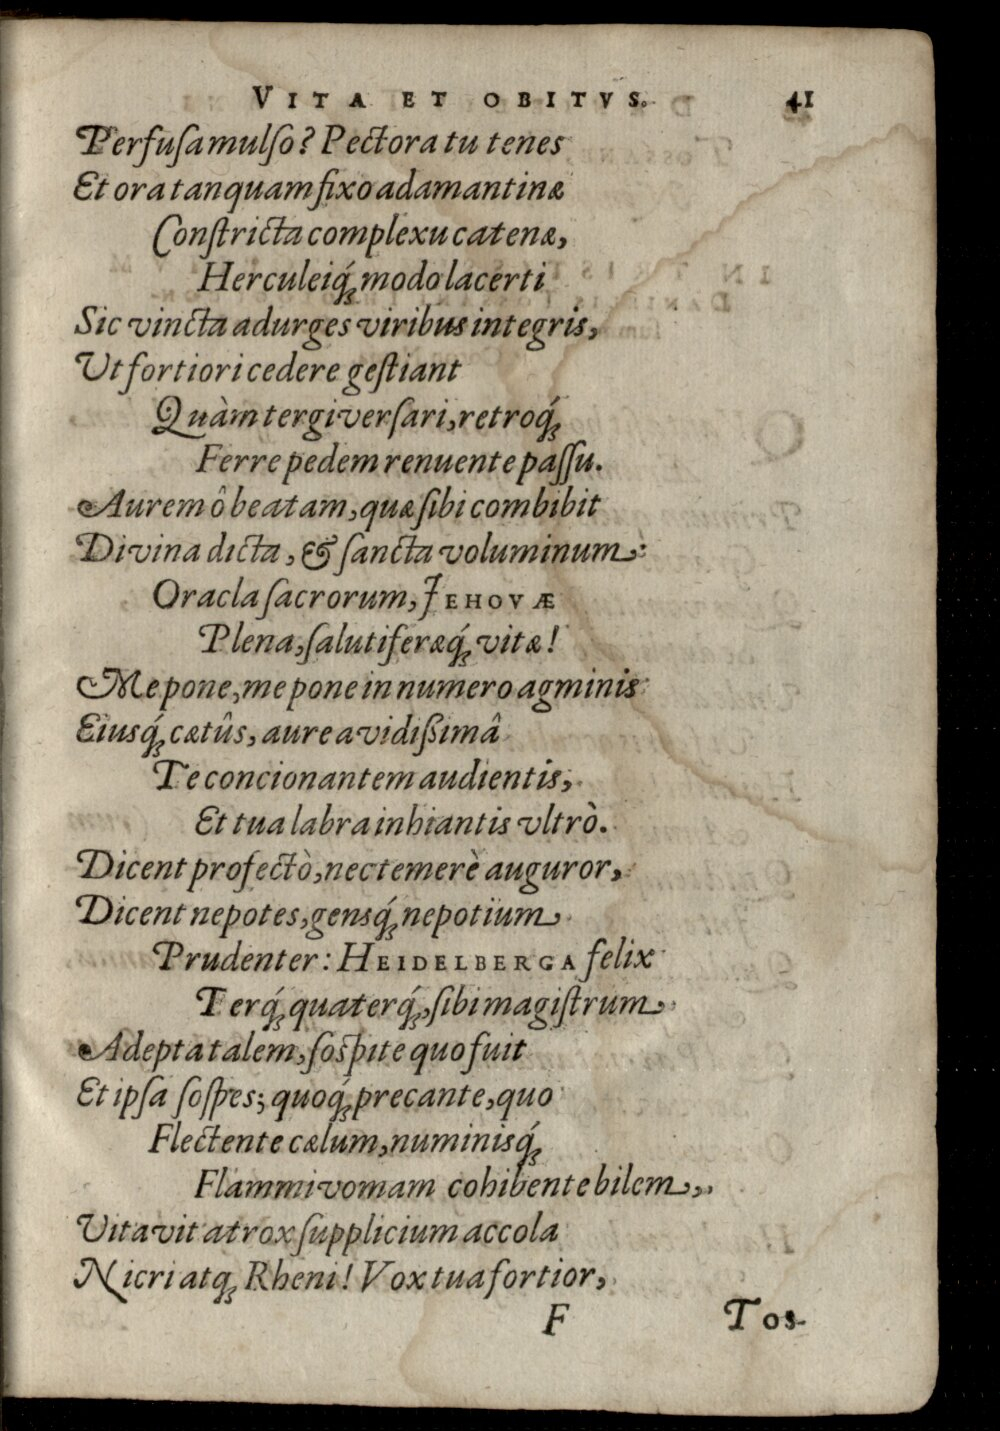 VITA ET OBITVS. 41
Perfusa mulso? Pectora tu tenes
Et ora tanquam fixo adamantinæ
Constricta complexu catenæ,
Herculeiq́; modo lacerti
Sic vincta adurges viribus integris,
Ut fortiori cedere gestiant
Quàm tergiversari, retroq́;
Ferre pedem renuente passu.
Aurem ô beatam, quæ sibi combibit
Divina dicta, & sancta voluminum
Oracla sacrorum, JEHOVÆ
Plena, salutiferæq́; vitæ!
Me pone, me pone in numero agminis
Eiusq́; cætûs, aure avidißimâ
Te concionantem audientis,
Et tua labra inhiantis vltrò.
Dicent profectò, nec temerè auguror,
Dicent nepotes, gensq́; nepotium
Prudenter: HEIDELBERGA felix
Terq́; quaterq́;, sibi magistrum
Adepta talem, sospite quo fuit
Et ipsa sospes; quoq́; precante, quo
Flectente cælum, numinisq́;
Flammivomam cohibente bilem,
Vitavit atrox supplicium accola
Nicri atq; Rheni! Vox tua fortior,
F Tos-